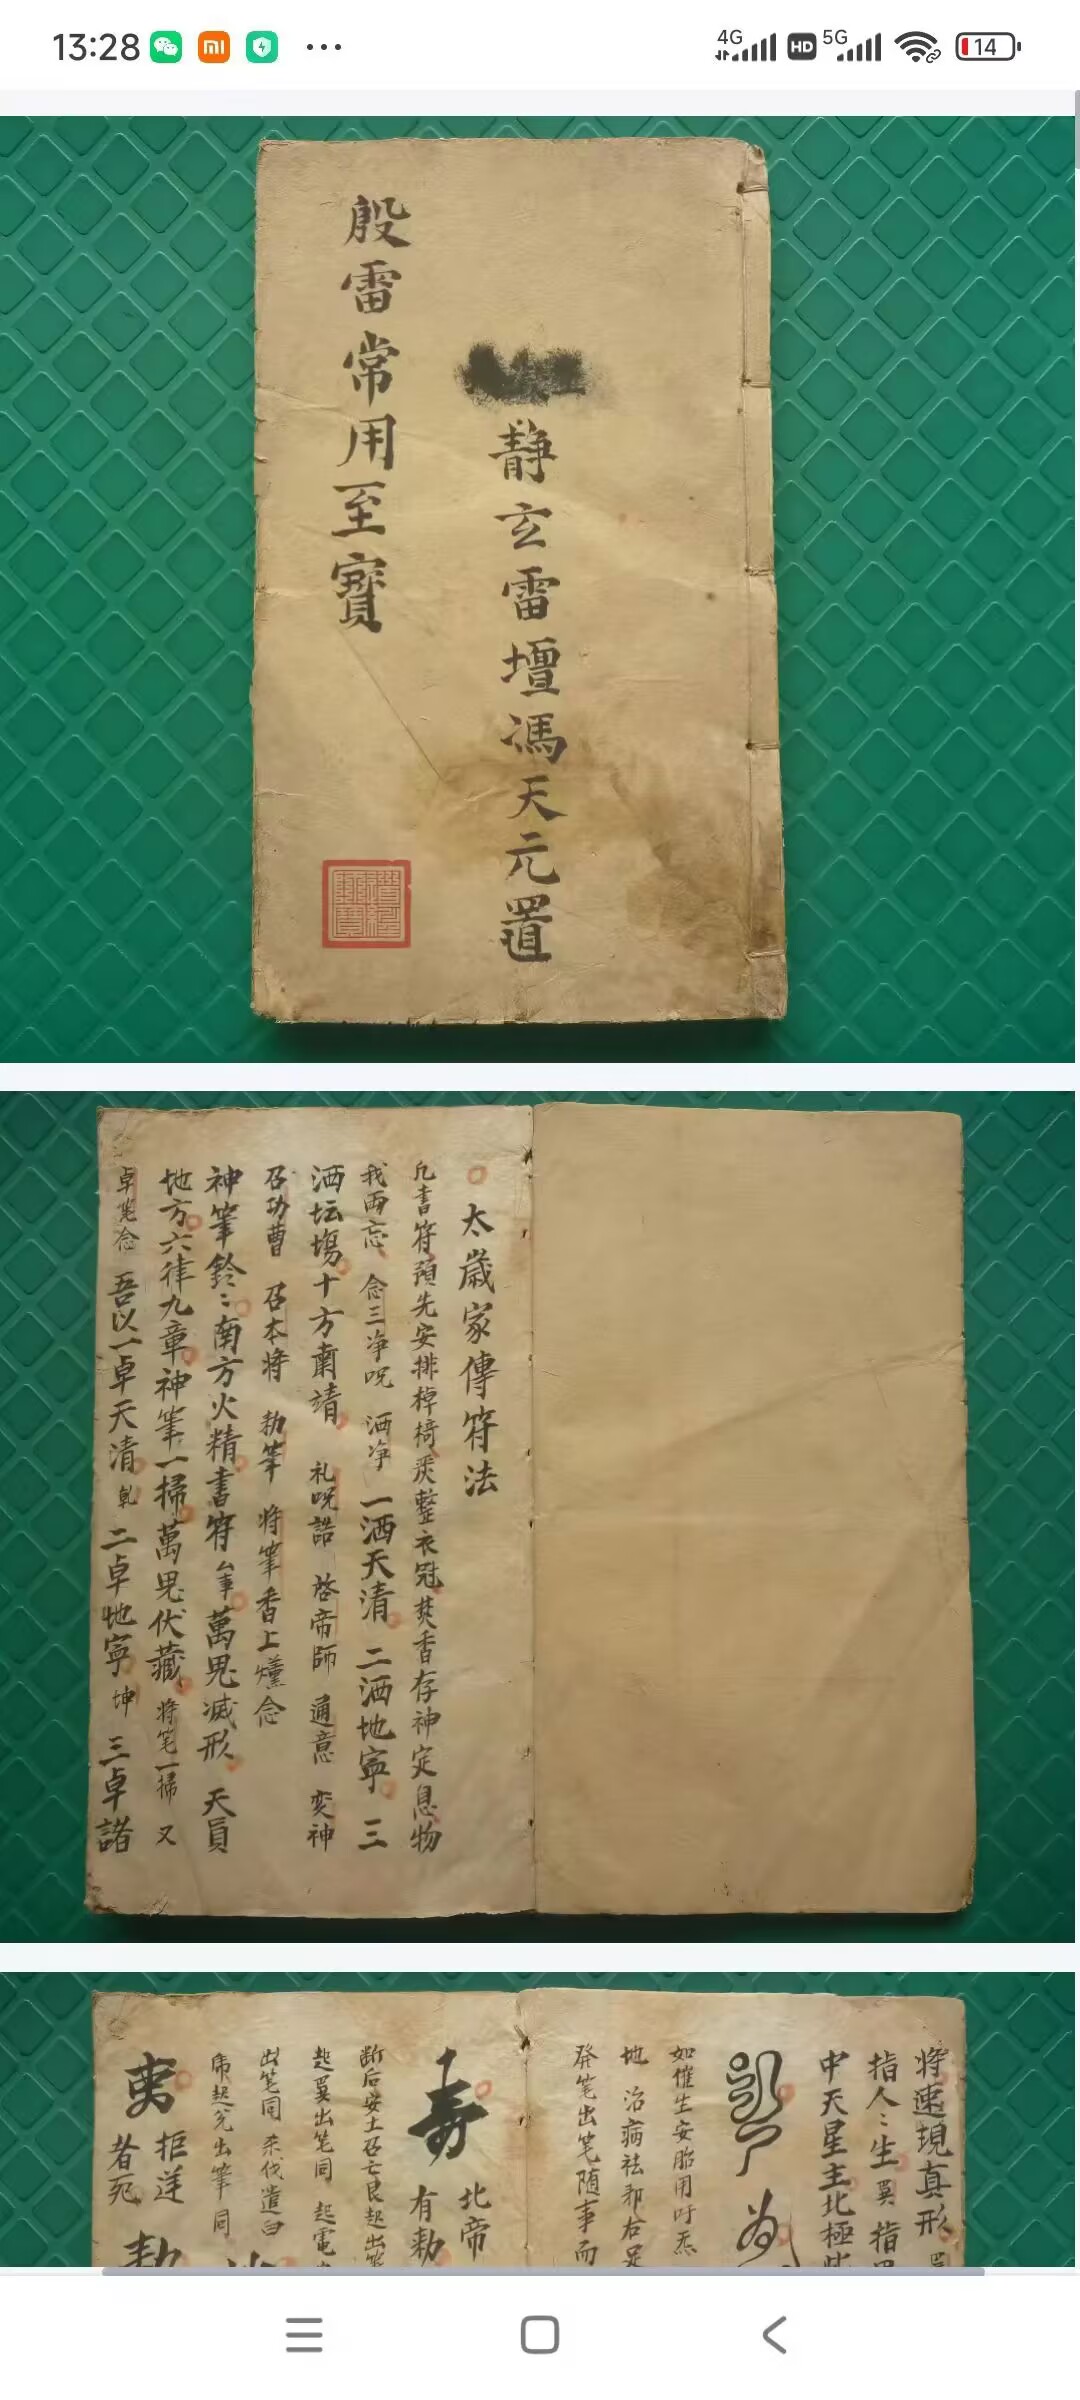 13:28
4G
HD
5G
14
殷雷常用至寶
静玄雷壇馮天元置
太歲家傳符法
凡書符預先安排棹椅畢整衣冠焚香存神定息物
我两忘 念三净呪 洒净 一洒天清 二洒地寧 三
洒坛塲十方肅靖 礼呪誥 啓帝師 通意 变神
召功曹 召本将 勅筆 将筆香上燻念
神筆鈴〻南方火精書符 萬鬼滅形 天員
地方六律九章神筆一掃萬鬼伏藏 将笔一掃 又
卓筆念 吾以一卓天清 乾 二卓地寧 坤 三卓諸
将速現真形
指人〻生 指
中天星主北極
如催生安胎用吁炁
地 治病祛邪右足
發笔出笔随事而
壽
北帝
有勅
断后安土召亡良起出笔
起巽出笔同 起電
出笔同 杀伐遣
起兑出筆同
拒逆
者死
勅